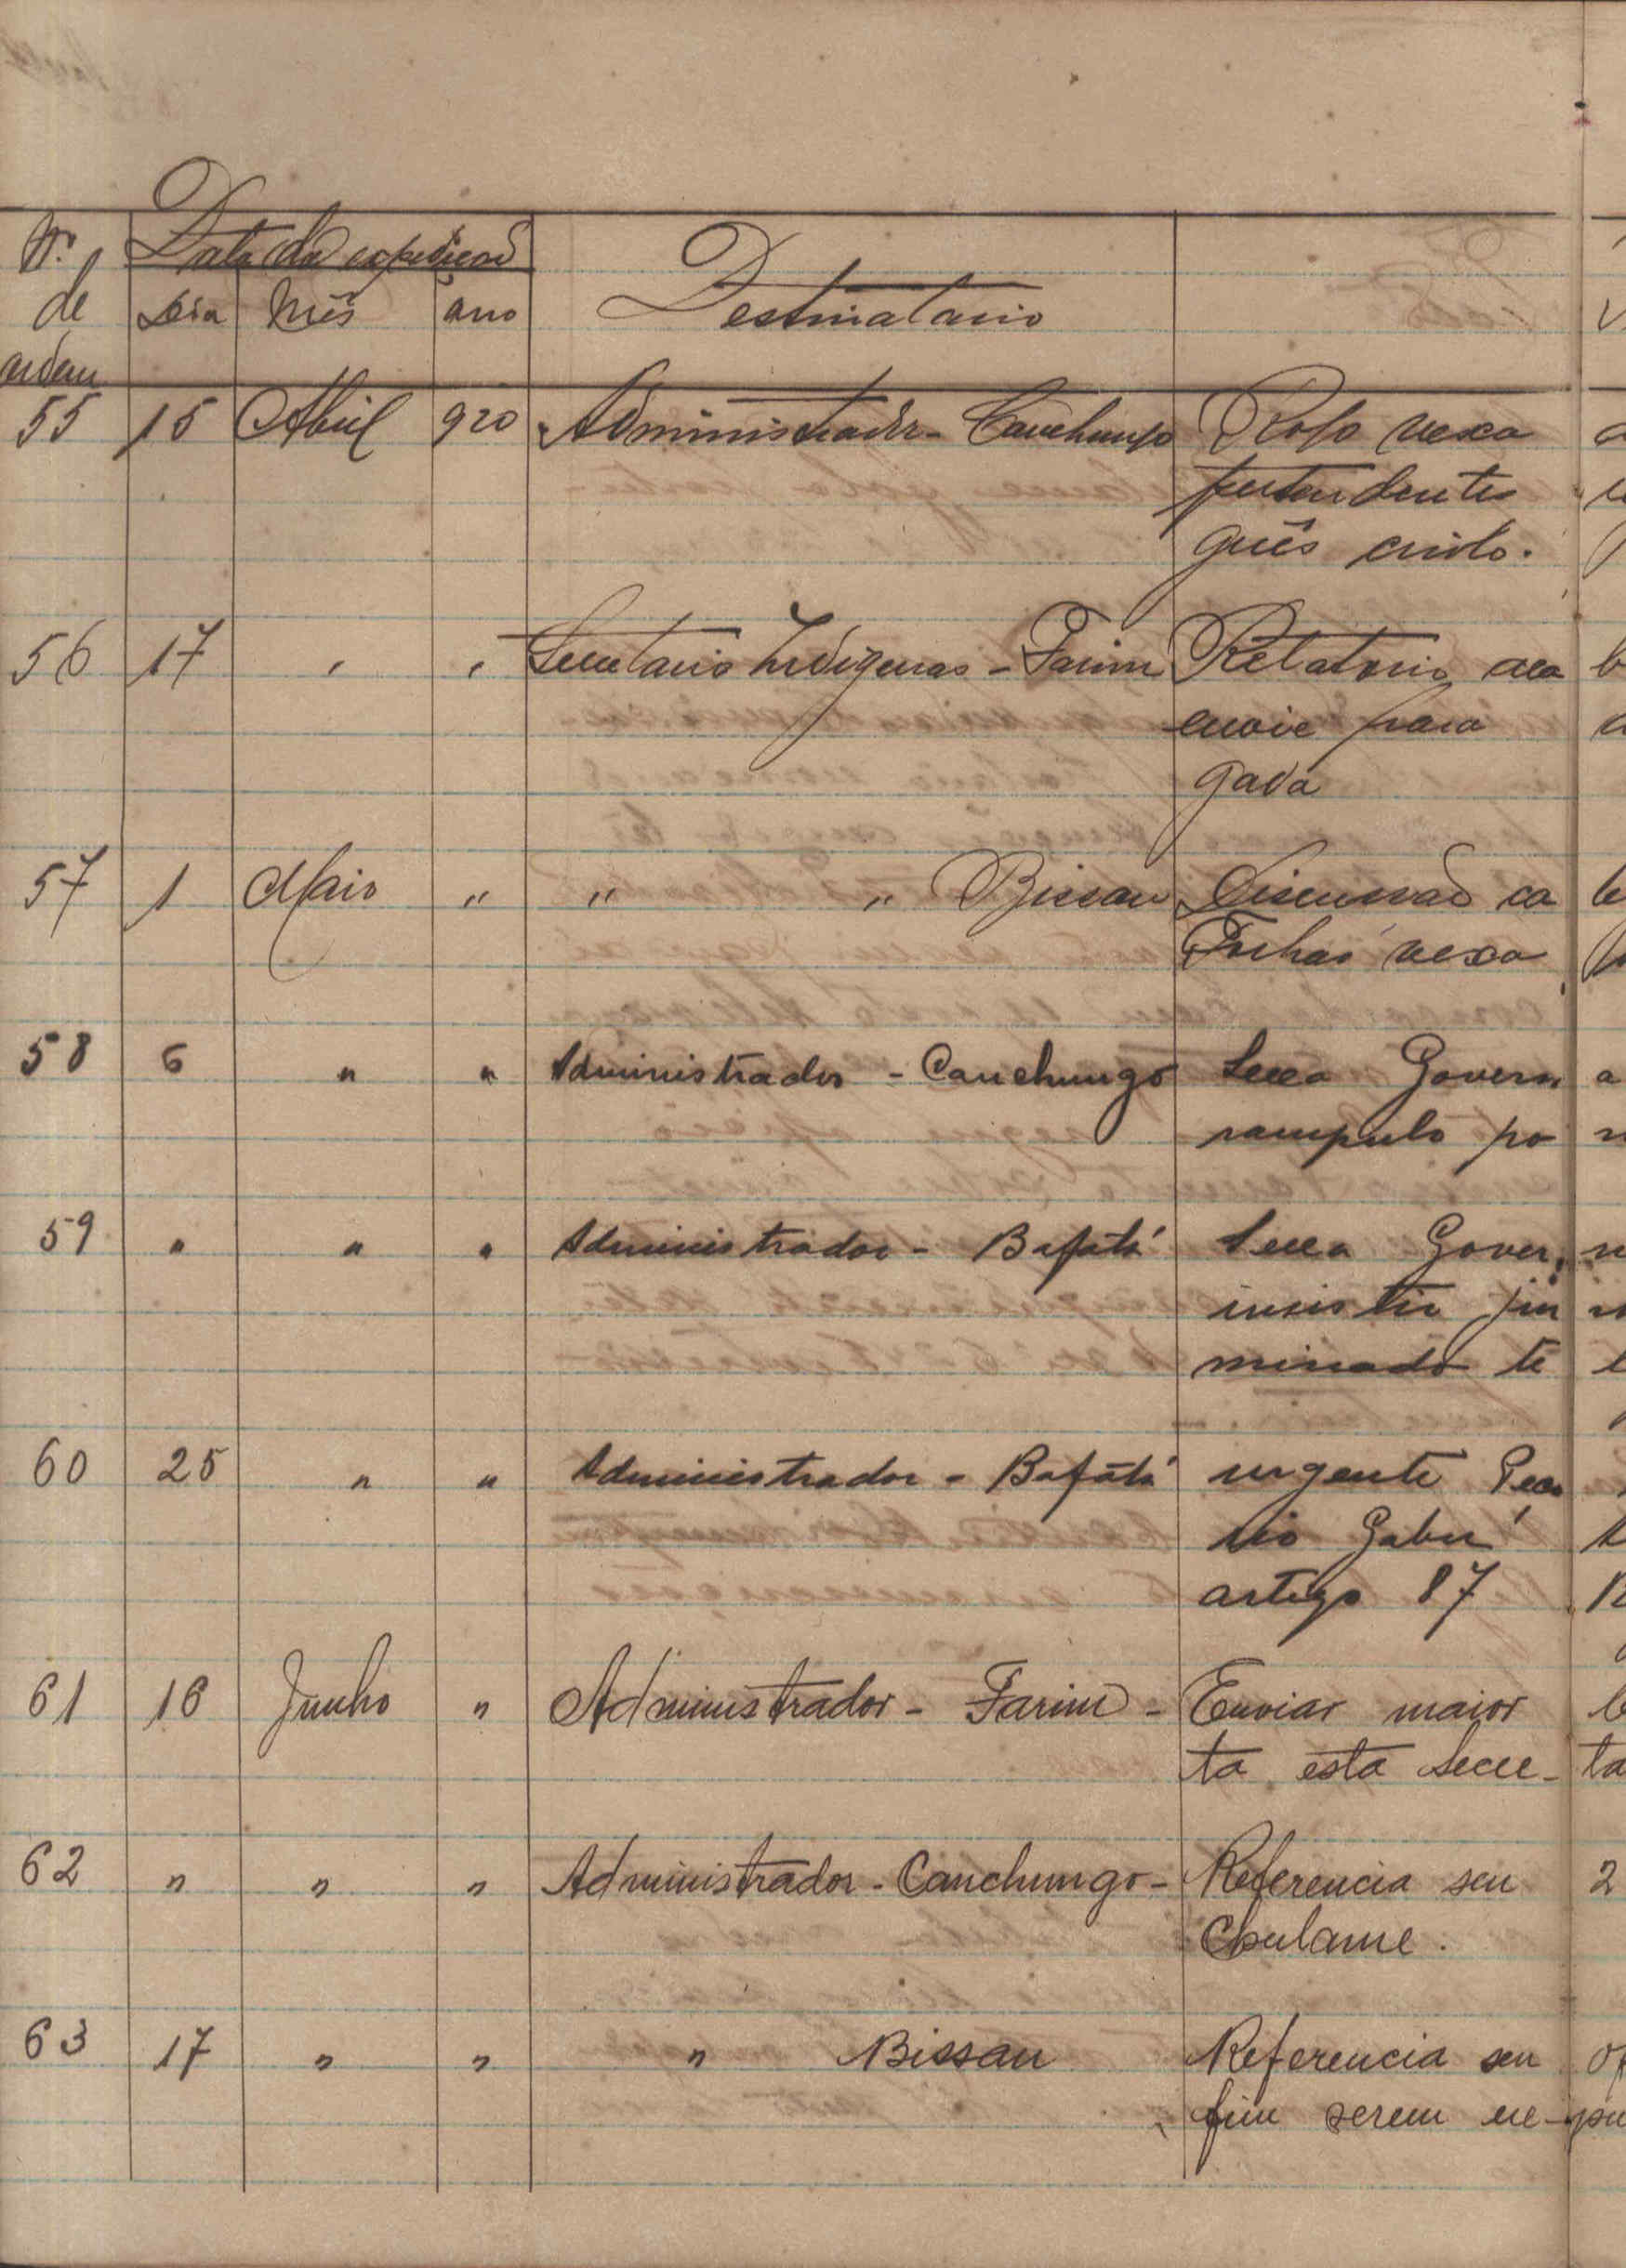 Nº Data da expedição
de Dia Mês ano Destinatario
ordem
55 15 Abril 920 Administrador - Canchungo Rogo vexa
pretendentes
guês criolo.
56 17 " " Secretario Indigenas - Farim Relatorio
envie para
gada
57 1 Maio " " " Bissau Discussão ca
vexa
58 6 " " Administrador - Canchungo Sexa Govern
po
59 " " " Administrador - Bafatá Sexa Gover
insistir
minado te
60 25 " " Administrador - Bafatá urgente
rio Gabú
artigo 87
61 16 Junho " Administrador - Farim - Enviar maior
ta esta Secre- ta
62 " " " Administrador - Canchungo - Referencia seu 2
Chulame.
63 17 " " " Bissau Referencia seu of
fim serem